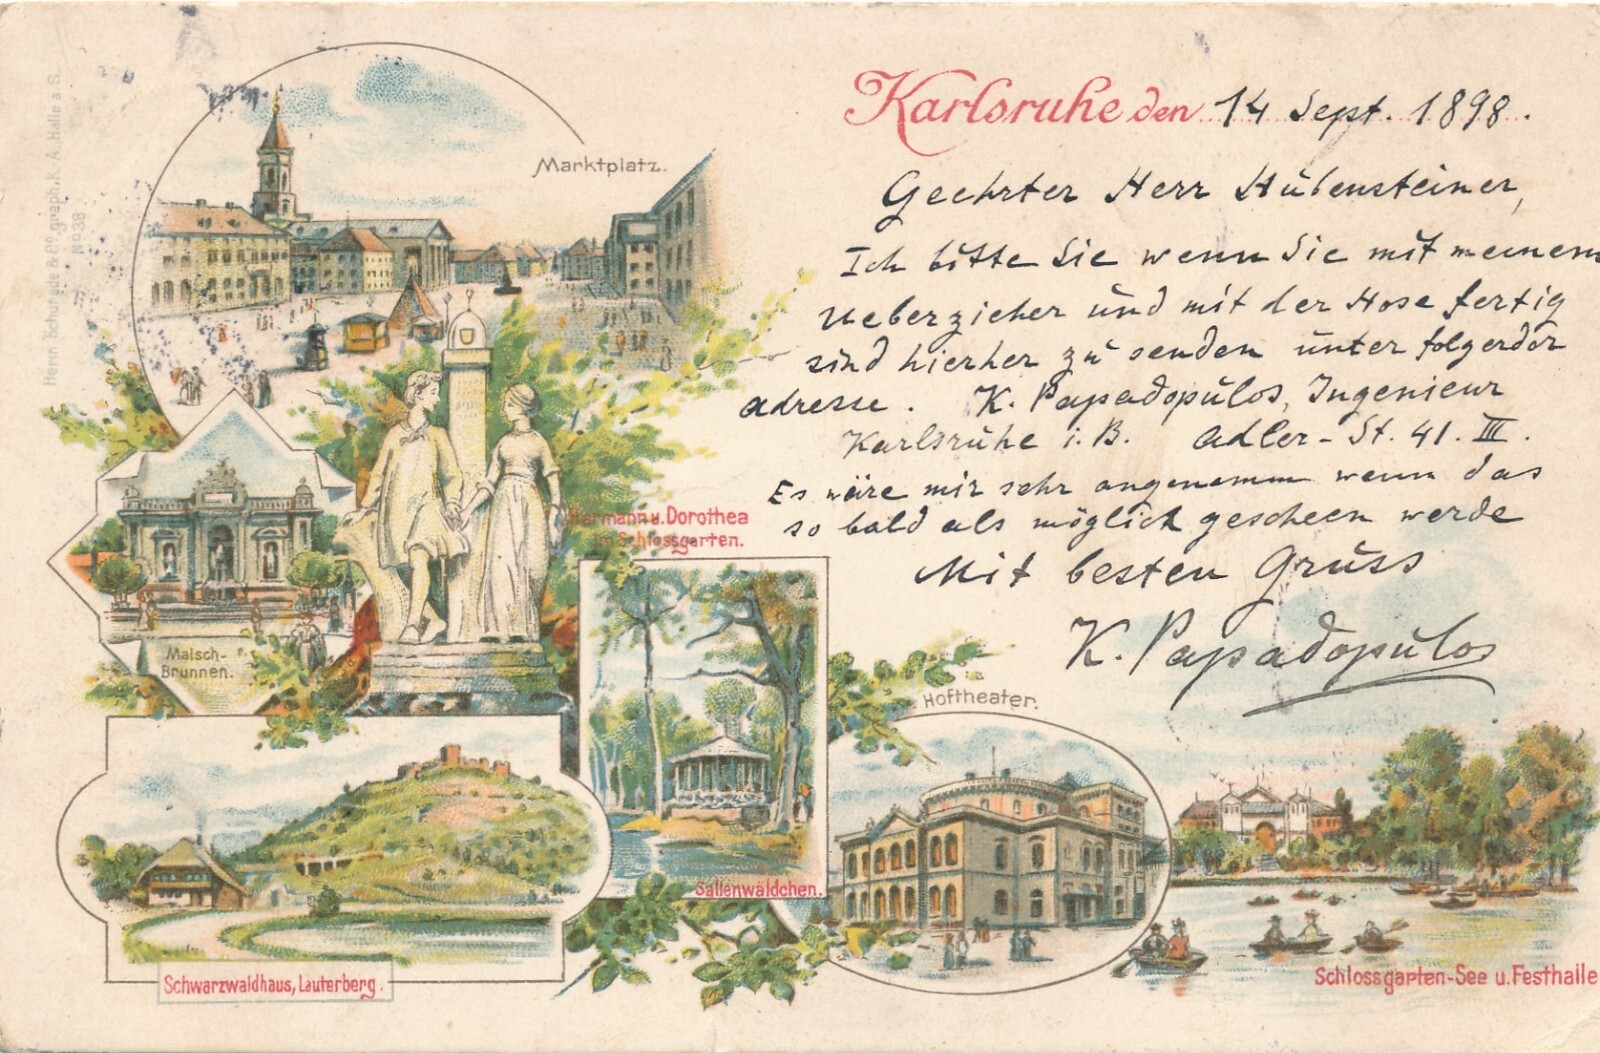 Karlsruhe den 14 Sept. 1898.
Geehrter Herr Hübensteiner,
Ich bitte Sie wenn Sie mit meinem
Ueberzieher und mit der Hose fertig
sind hierher zu senden unter folgerdor
adresse. K. Papadopúlos, Ingenieur
Karlsrühe i. B. Adler-St. 41. III.
Es wäre mir sehr angenemm wenn das
so bald als möglich gescheen werde
Mit besten Grüss
K. Papadopúlos
Marktplatz.
Hermann u. Dorothea
im Schlossgarten.
Malsch-
Brunnen.
Sallenwäldchen.
Hoftheater.
Schwarzwaldhaus, Lauterberg.
Schlossgarten-See u. Festhalle
Henn Schurgde & Co graph. K. A. Halle a S.
No 38